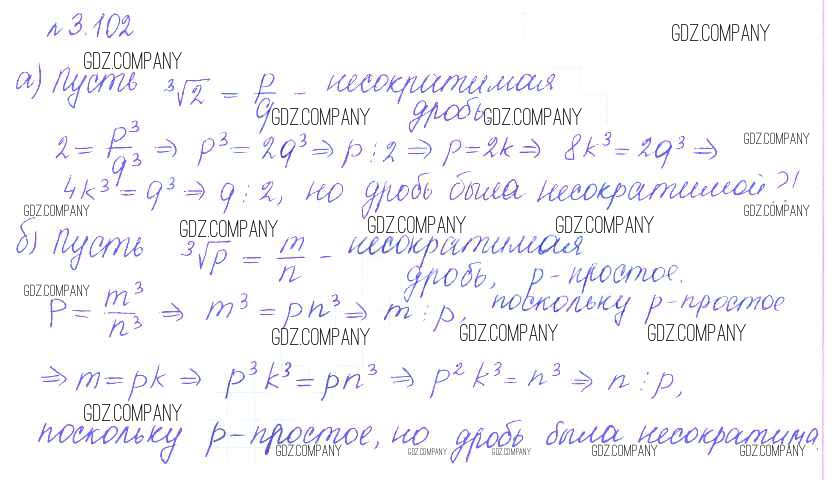 № 3.102
GDZ.COMPANY
GDZ.COMPANY
а) Пусть ³√2 = p/q – несократимая
дробь
GDZ.COMPANY GDZ.COMPANY
2 = p³/q³ ⇒ p³ = 2q³ ⇒ p ⋮ 2 ⇒ p = 2k ⇒ 8k³ = 2q³ ⇒
GDZ.COMPANY
4k³ = q³ ⇒ q ⋮ 2, но дробь была несократимой ?!
GDZ.COMPANY GDZ.COMPANY
GDZ.COMPANY GDZ.COMPANY GDZ.COMPANY
б) Пусть ³√p = m/n – несократимая
дробь, p – простое.
GDZ.COMPANY
P = m³/n³ ⇒ m³ = pn³ ⇒ m ⋮ p, поскольку p – простое
GDZ.COMPANY GDZ.COMPANY GDZ.COMPANY
⇒ m = pk ⇒ p³k³ = pn³ ⇒ p²k³ = n³ ⇒ n ⋮ p,
GDZ.COMPANY
поскольку p – простое, но дробь была несократима
GDZ.COMPANY GDZ.COMPANY GDZ.COMPANY GDZ.COMPANY GDZ.COMPANY